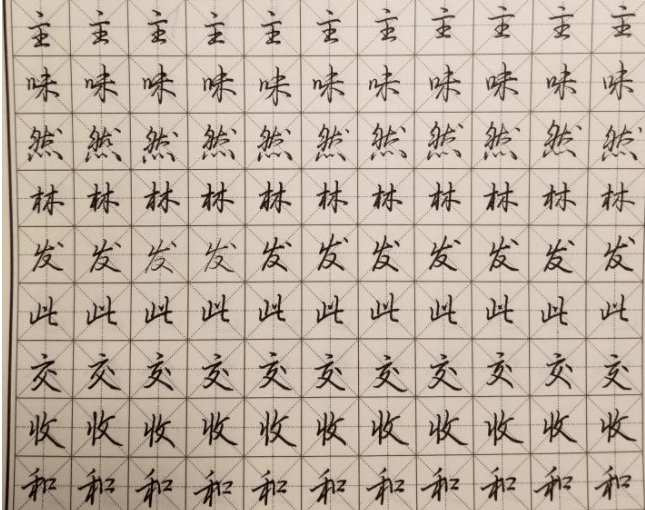 主主主主主主主主主主主
味味味味味味味味味味味
然然然然然然然然然然然
林林林林林林林林林林林
发发发发发发发发发发发
此此此此此此此此此此此
交交交交交交交交交交交
收收收收收收收收收收收
和和和和和和和和和和和